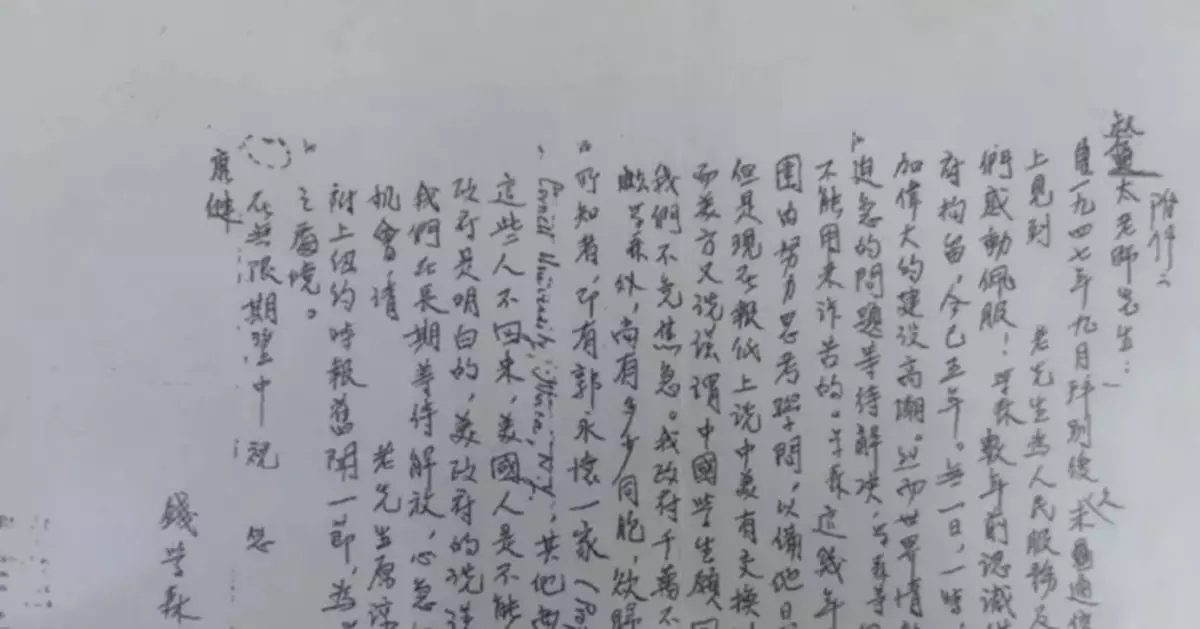 附件二
叔通太老师先生：
自一九四七年九月拜别後未通
上見到 老先生為人民服務及
們感動佩服！学森數年前認識
府拘留，今已五年。無一日，一時，
加偉大的建設高潮。然而世界情
迫急的問題等待解决，学森等
不能用来诉苦的。学森這幾年
圍内努力思考學問，以備他日
但是現在報纸上说中美有交換
而美方又说强謂中國学生願回
我們不免焦急。我政府千萬不
歟学森外，尚有多少同胞，欲歸
所知者，即有郭永懷一家 (Prof
Cornell University, Ithaca, N.Y.，其他尚
這些人不回来，美國人是不能
政府是明白的，美政府的说谎
我們在長期等待解放，心急
机會，请 老先生原諒
附上纽约時報舊聞一節，為
之處境。
在無限期望中祝 您
康健
錢学森